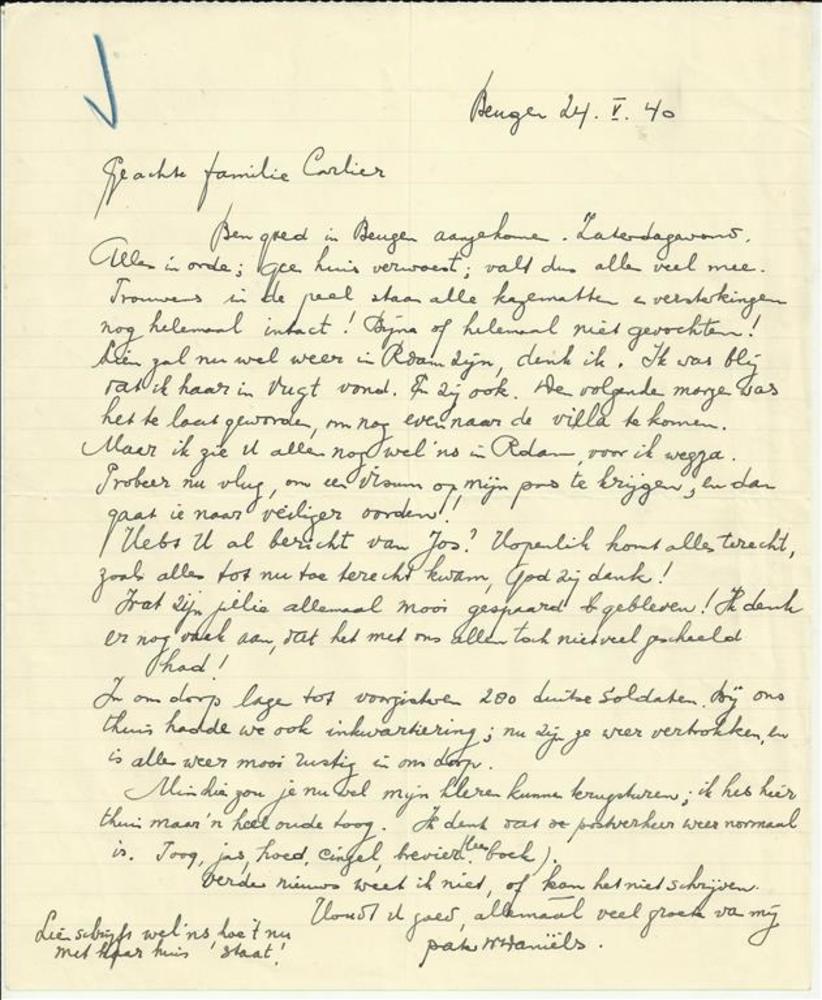 Beugen 24. V. 40
Geachte familie Carlier
Ben goed in Beugen aangekomen. Zaterdagavond.
Alles in orde; geen huis verwoest; valt dus alles veel mee.
Trouwens in de peel staan alle kazematten en versterkingen
nog helemaal intact! Bijna of helemaal niet gevochten!
Lien zal nu wel weer in Rdam zijn, denk ik. Ik was blij
dat ik haar in Vugt vond. En zij ook. Den volgende morgen was
het te laat geworden, om nog even naar de villa te komen.
Maar ik zie U allen nog wel 'ns in Rdam, voor ik wegga.
Probeer nu vlug, om een visum op mijn pas te krijgen, en dan
gaat ie naar veiliger oorden!
Hebt U al bericht van Jos? Hopenlik komt alles terecht,
zoals alles tot nu toe terecht kwam, God zij dank!
Wat zijn jelie allemaal mooi gespaard gebleven! Ik denk
er nog vaak aan, dat het met ons allen toch niet veel gescheeld
had!
In ons dorp lagen tot voorgisteren 280 duitse soldaten. Bij ons
thuis hadden we ook inkwartiering; nu zijn ze weer vertrokken, en
is alles weer mooi rustig in ons dorp.
Misschien zou je nu wel mijn kleren kunnen terugsturen; ik heb hier
thuis maar 'n heel oude toog. Ik denk dat de postverkeer weer normaal
is. Toog, jas, hoed, cingel, brevier boek).
Verder nieuws weet ik niet, of kan het niet schrijven.
Houdt U goed, allemaal veel groeten van mij
pater W Daniëls.
Lien schrijft wel 'ns, hoe 't nu
met haar huis staat!